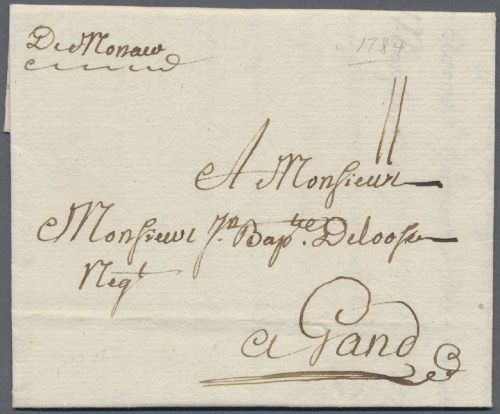 De Monaco
1784
A Monsieur
Monsieur Jn. Bapte. Deloose
Negt
a Gand